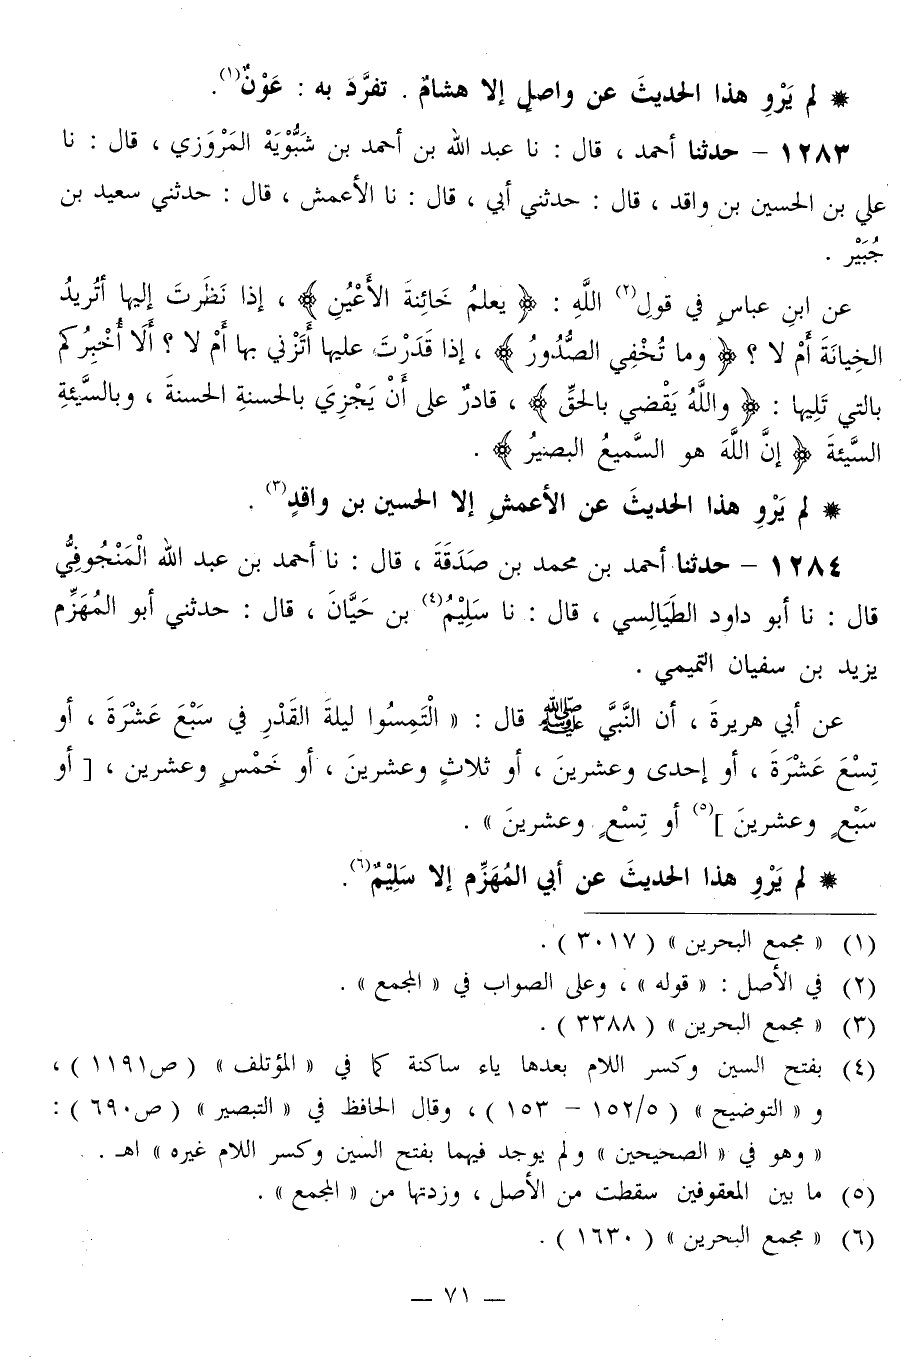 * لم يَرْوِ هذا الحديثَ عن واصلٍ إلا هشامٌ . تفرَّدَ به : عَوْنٌ(١).
١٢٨٣ – حدثنا أحمد ، قال : نا عبد الله بن أحمد بن شَبُّوْيَهْ المَرْوَزي ، قال : نا
علي بن الحسين بن واقد ، قال : حدثني أبي ، قال : نا الأعمش ، قال : حدثني سعيد بن
جُبَيْر .
عن ابنِ عباسٍ في قولِ(٢) اللَّهِ : ﴿ يعلمُ خَائِنةَ الأَعْيُنِ ﴾ ، إذا نَظَرتَ إليها أتُريدُ
الخِيانَةَ أَمْ لا ؟ ﴿ وما تُخْفِي الصُّدُورُ ﴾ ، إذا قَدَرْتَ عليها أَتَزْني بها أَمْ لا ؟ أَلَا أُخْبِرُكم
بالتي تَلِيها : ﴿ واللَّهُ يَقْضي بالحَقِّ ﴾ ، قادرٌ على أَنْ يَجْزِي بالحسنةِ الحسنةَ ، وبالسَّيئةِ
السَّيئةَ ﴿ إنَّ اللَّهَ هو السَّميعُ البصيرُ ﴾ .
* لم يَرْوِ هذا الحديثَ عن الأعمشِ إلا الحسين بن واقدٍ(٣) .
١٢٨٤ – حدثنا أحمد بن محمد بن صَدَقَةَ ، قال : نا أحمد بن عبد الله الْمَنْجُوفِيُّ
قال : نا أبو داود الطَيَالِسي ، قال : نا سَلِيْمُ(٤) بن حَيَّانَ ، قال : حدثني أبو المُهَزِّم
يزيد بن سفيان التميمي .
عن أبي هريرةَ ، أن النَّبيَّ ﷺ قال : « الْتَمِسُوا ليلةَ القَدْرِ في سَبْعَ عَشْرَةَ ، أو
تِسْعَ عَشْرَةَ ، أو إحدى وعشرينَ ، أو ثلاثٍ وعشرينَ ، أو خَمْسٍ وعشرين ، [ أو
سَبْعٍ وعشرينَ ](٥) أو تِسْعٍ وعشرينَ » .
* لم يَرْوِ هذا الحديثَ عن أبي المُهَزِّم إلا سَلِيْمٌ(٦).
(١) « مجمع البحرين » ( ٣٠١٧ ) .
(٢) في الأصل : « قوله » ، وعلى الصواب في « المجمع » .
(٣) « مجمع البحرين » ( ٣٣٨٨ ) .
(٤) بفتح السين وكسر اللام بعدها ياء ساكنة كما في « المؤتلف » ( ص١١٩١ ) ،
و « التوضيح » ( ١٥٢/٥ – ١٥٣ ) ، وقال الحافظ في « التبصير » ( ص٦٩٠ ) :
« وهو في « الصحيحين » ولم يوجد فيهما بفتح السين وكسر اللام غيره » اهـ .
(٥) ما بين المعقوفين سقطت من الأصل ، وزدتها من « المجمع » .
(٦) « مجمع البحرين » ( ١٦٣٠ ) .
— ٧١ —